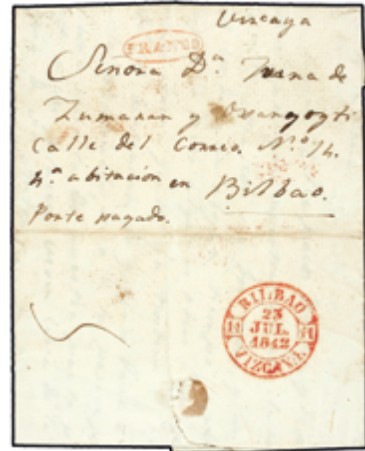 Vizcaya
FRANCO
Señora Dª Juana de
Zumaran y
Calle del Correo. Nº 14.
4ª abitacion en Bilbao.
Porte pagado.
BILBAO
23
JUL.
1842
VIZCAYA.